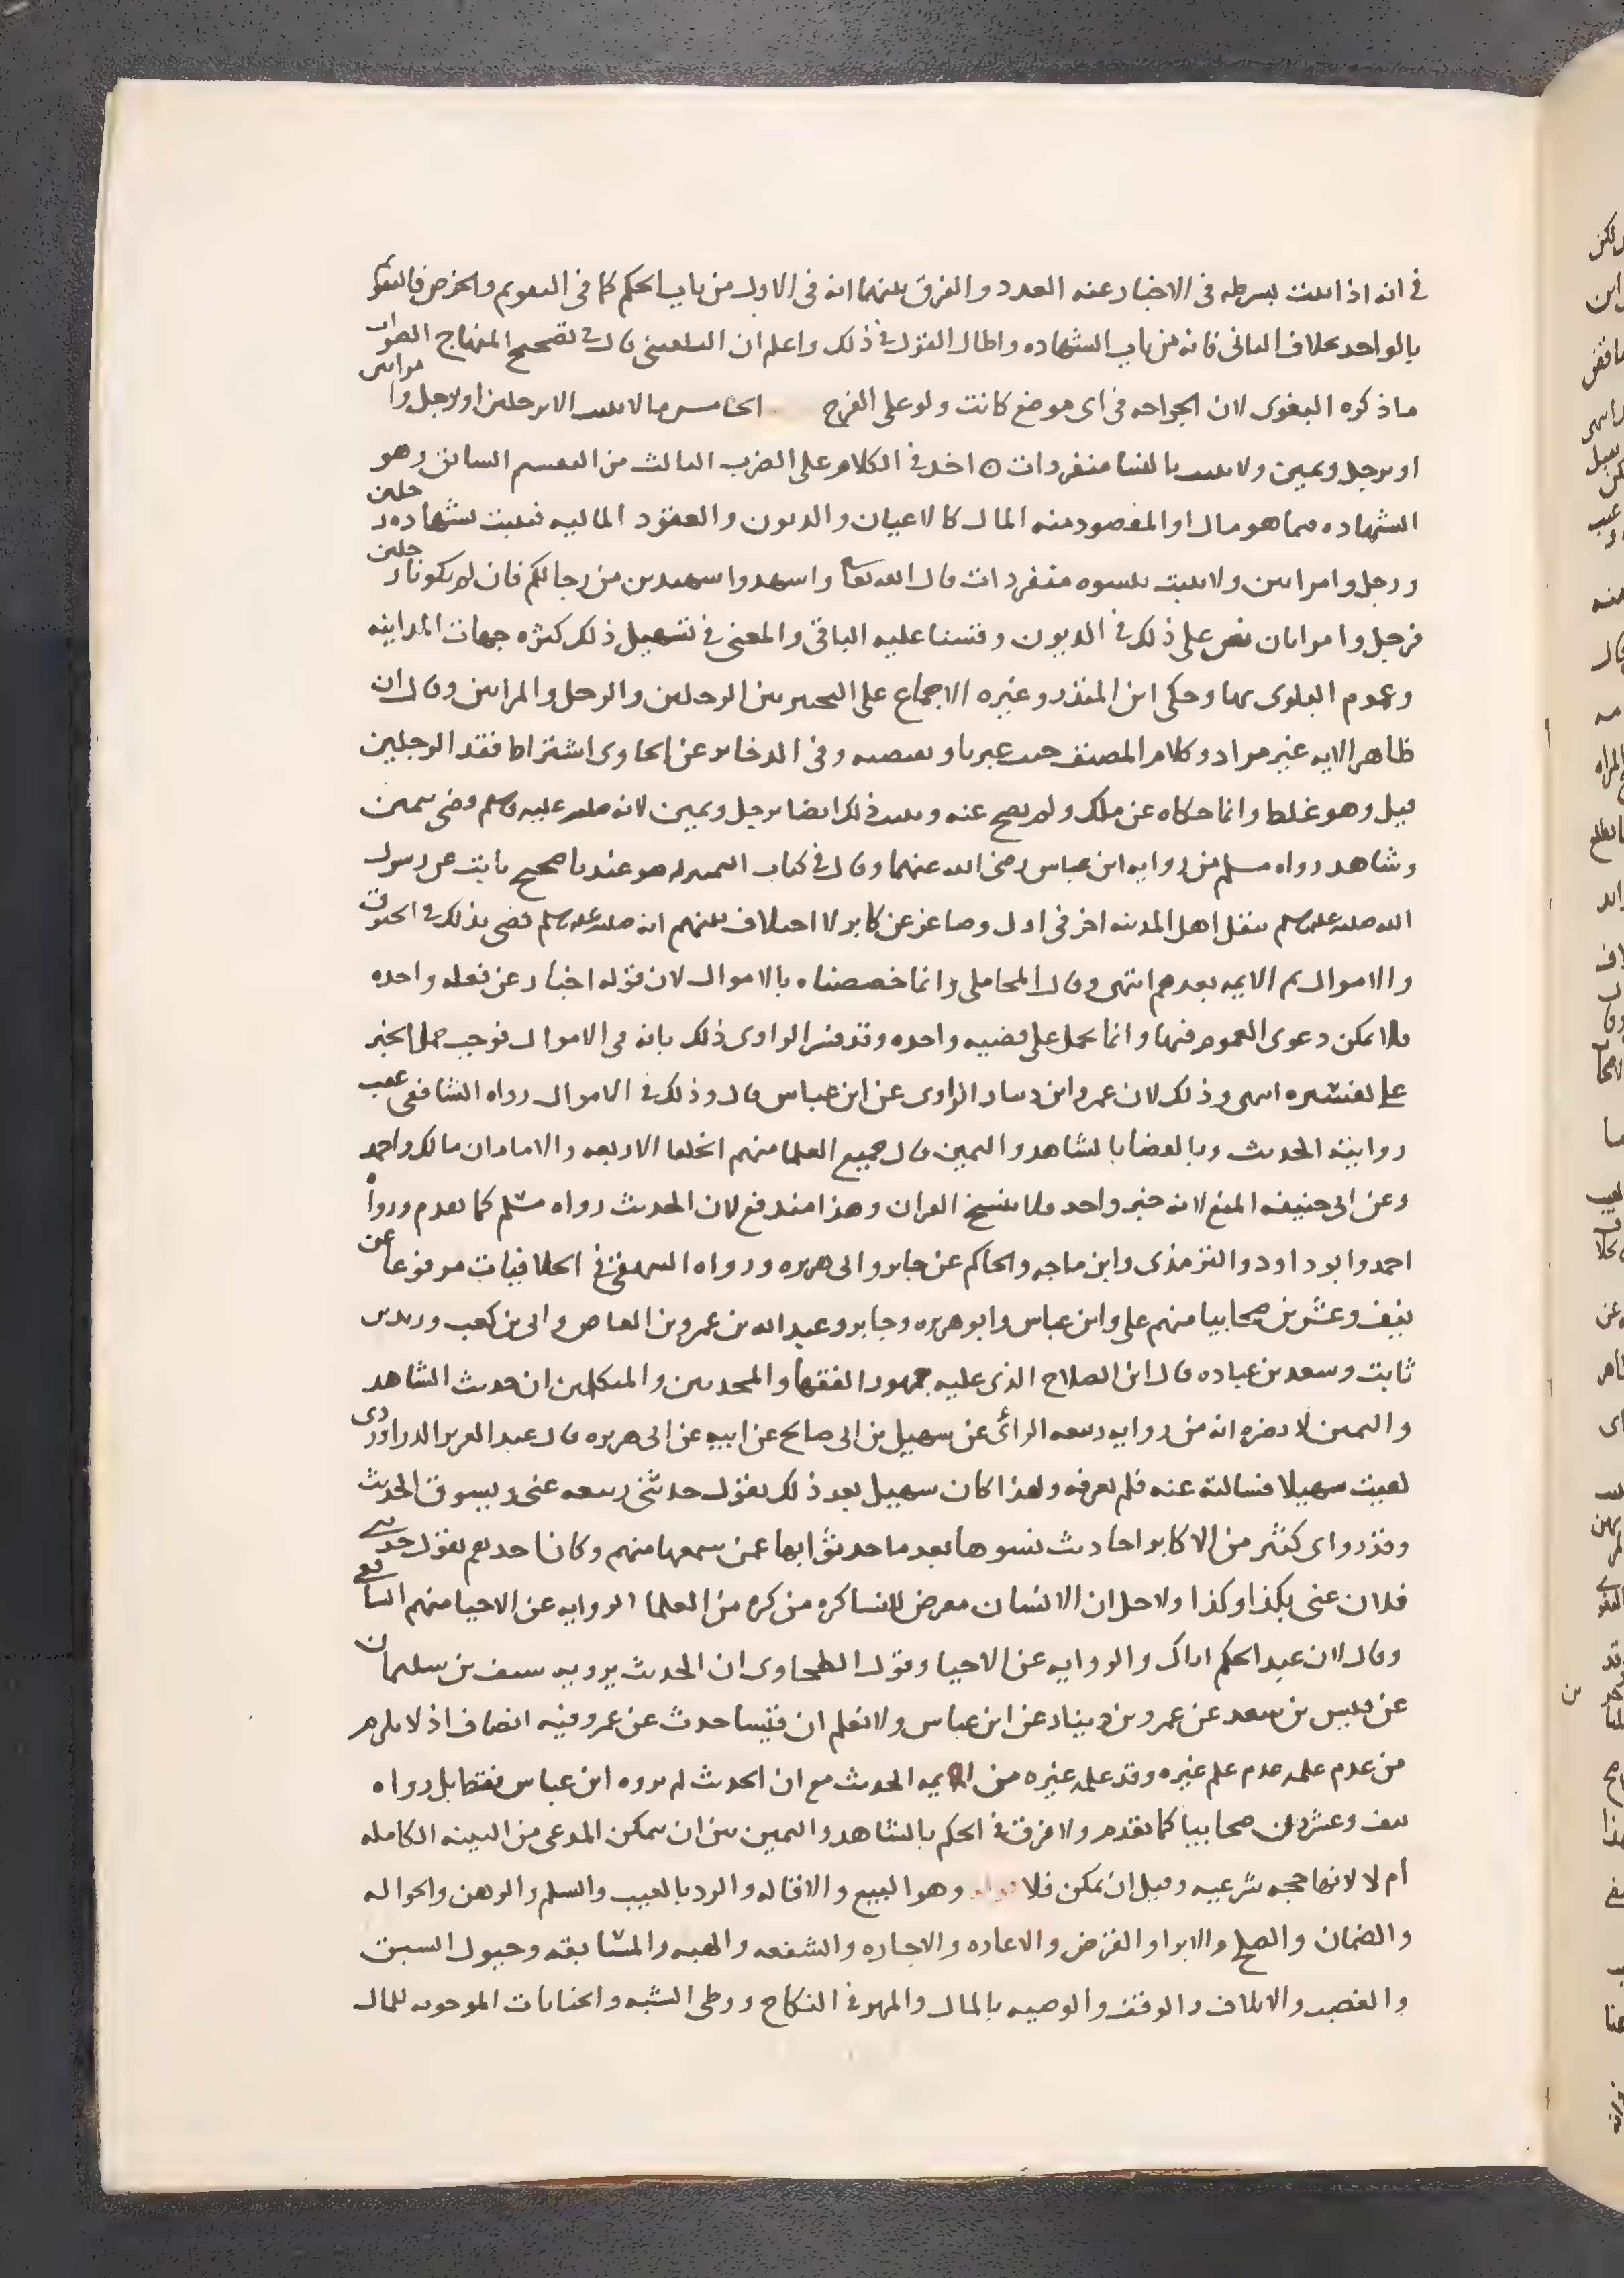 في انه اذا اثبت بشرطه في الاخبار عنه العدد والفرق بينهما انه في الاول من باب الحكم كما في التقويم والخرص فالتقويم
بالواحد بخلاف الثاني فانه من باب الشهاده واطال القول في ذلك واعلم ان البلقيني قال في تصحيح المنهاج الصواب
ما ذكره البغوي لان الجراحه في اي موضع كانت ولو على الفرج الخامس ما لا يثبت الا برجلين او برجل وامراتين
او برجل ويمين ولا يثبت بالنسا منفردات اخذ في الكلام على الضرب الثالث من التقسيم السابق وهو
الشهاده فيما هو مال او المقصود منه المال كالاعيان والديون والعقود الماليه فيثبت بشهاده رجلين
ورجل وامراتين ولا يثبت بنسوه منفردات قال الله تعالى واستشهدوا شهيدين من رجالكم فان لم يكونا رجلين
فرجل وامراتان نص على ذلك في الديون وقسنا عليه الباقي والمعنى في تسهيل ذلك كثره جهات المداينه
وعموم البلوى بها وحكى ابن المنذر وغيره الاجماع على التخيير بين الرجلين والرجل والمراتين وقال ان
ظاهر الايه غير مراد وكلام المصنف حيث عبر باو يقتضيه وفي الدخاير عن الحاوي اشتراط فقد الرجلين
قيل وهو غلط وانما حكاه عن ملك ولم يصح عنه ويثبت ذلك ايضا برجل ويمين لانه صلى الله عليه وسلم قضى بيمين
وشاهد رواه مسلم من روايه ابن عباس رضي الله عنهما وقال في كتاب التمييز له هو عندنا صحيح ثابت عن رسول
الله صلى الله عليه وسلم بنقل اهل المدينه اخر في اول وصاغر عن كابر لا اختلاف بينهم انه صلى الله عليه وسلم قضى بذلك في الحقوق
والاموال ثم الايمه بعدهم انتهى وقال المحاملي وانما خصصناه بالاموال لان قوله اخبار عن فعله واحده
فلا يمكن دعوى العموم فيها وانما يحمل على قضيه واحده وقد فسر الراوي ذلك بانه في الاموال فوجب حمل الخبر
على تفسيره انتهى وذلك لان عمرو ابن دينار الراوي عن ابن عباس قال وذلك في الاموال رواه الشافعي عقب
روايته الحديث وبالقضا بالشاهد واليمين قال جميع العلما منهم الخلفا الاربعه والامامان مالك واحمد
وعن ابي حنيفه المنع لانه خبر واحد فلا ينسخ القران وهذا مندفع لان الحديث رواه مسلم كما تقدم ورواه
احمد وابو داود والترمذي وابن ماجه والحاكم عن جابر وابي هريره ورواه البيهقي في الخلافيات مرفوعا عن
نيف وعشرين صحابيا منهم علي وابن عباس وابو هريره وجابر وعبد الله بن عمرو بن العاص وابي بن كعب وزيد بن
ثابت وسعد بن عباده قال ابن الصلاح الذي عليه جمهور الفقها والمحدثين والمتكلمين ان حديث الشاهد
واليمين لا يضره انه من روايه ربيعه الرائ عن سهيل بن ابي صالح عن ابيه عن ابي هريره قال عبد العزيز الدراوردي
لقيت سهيلا فسالته عنه فلم يعرفه ولهذا كان سهيل بعد ذلك يقول حدثني ربيعه عني ويسوق الحديث
وقد روا اي كثير من الاكابر احاديث نسوها بعد ما حدثوا بها عمن سمعها منهم وكان احدهم يقول حدثني
فلان عني بكذا وكذا ولاجل ان الانسان معرض للنسا كره من كره من العلما الروايه عن الاحيا منهم الشافعي
وقال لابن عبد الحكم اياك والروايه عن الاحيا وقول الطحاوي ان الحديث يرويه سيف بن سليمان
عن قيس بن سعد عن عمرو بن دينار عن ابن عباس ولا نعلم ان قيسا حدث عن عمرو فيه انصاف اذ لا يلزم
من عدم علمه عدم علم غيره وقد علمه غيره من ايمه الحديث مع ان الحديث لم يروه ابن عباس فقط بل رواه
نيف وعشرون صحابيا كما تقدم ولا فرق في الحكم بالشاهد واليمين بين ان يتمكن المدعي من البينه الكامله
ام لا لانها حجه شرعيه وقيل ان تمكن فلا وهو البيع والاقاله والرد بالعيب والسلم والرهن والحواله
والضمان والصلح والابرا والقرض والاعاره والاجاره والشفعه والهبه والمسابقه وحصول السبق
والغصب والاتلاف والوقف والوصيه بالمال والمهر في النكاح ووطى الشبه والجنايات الموجبه للمال